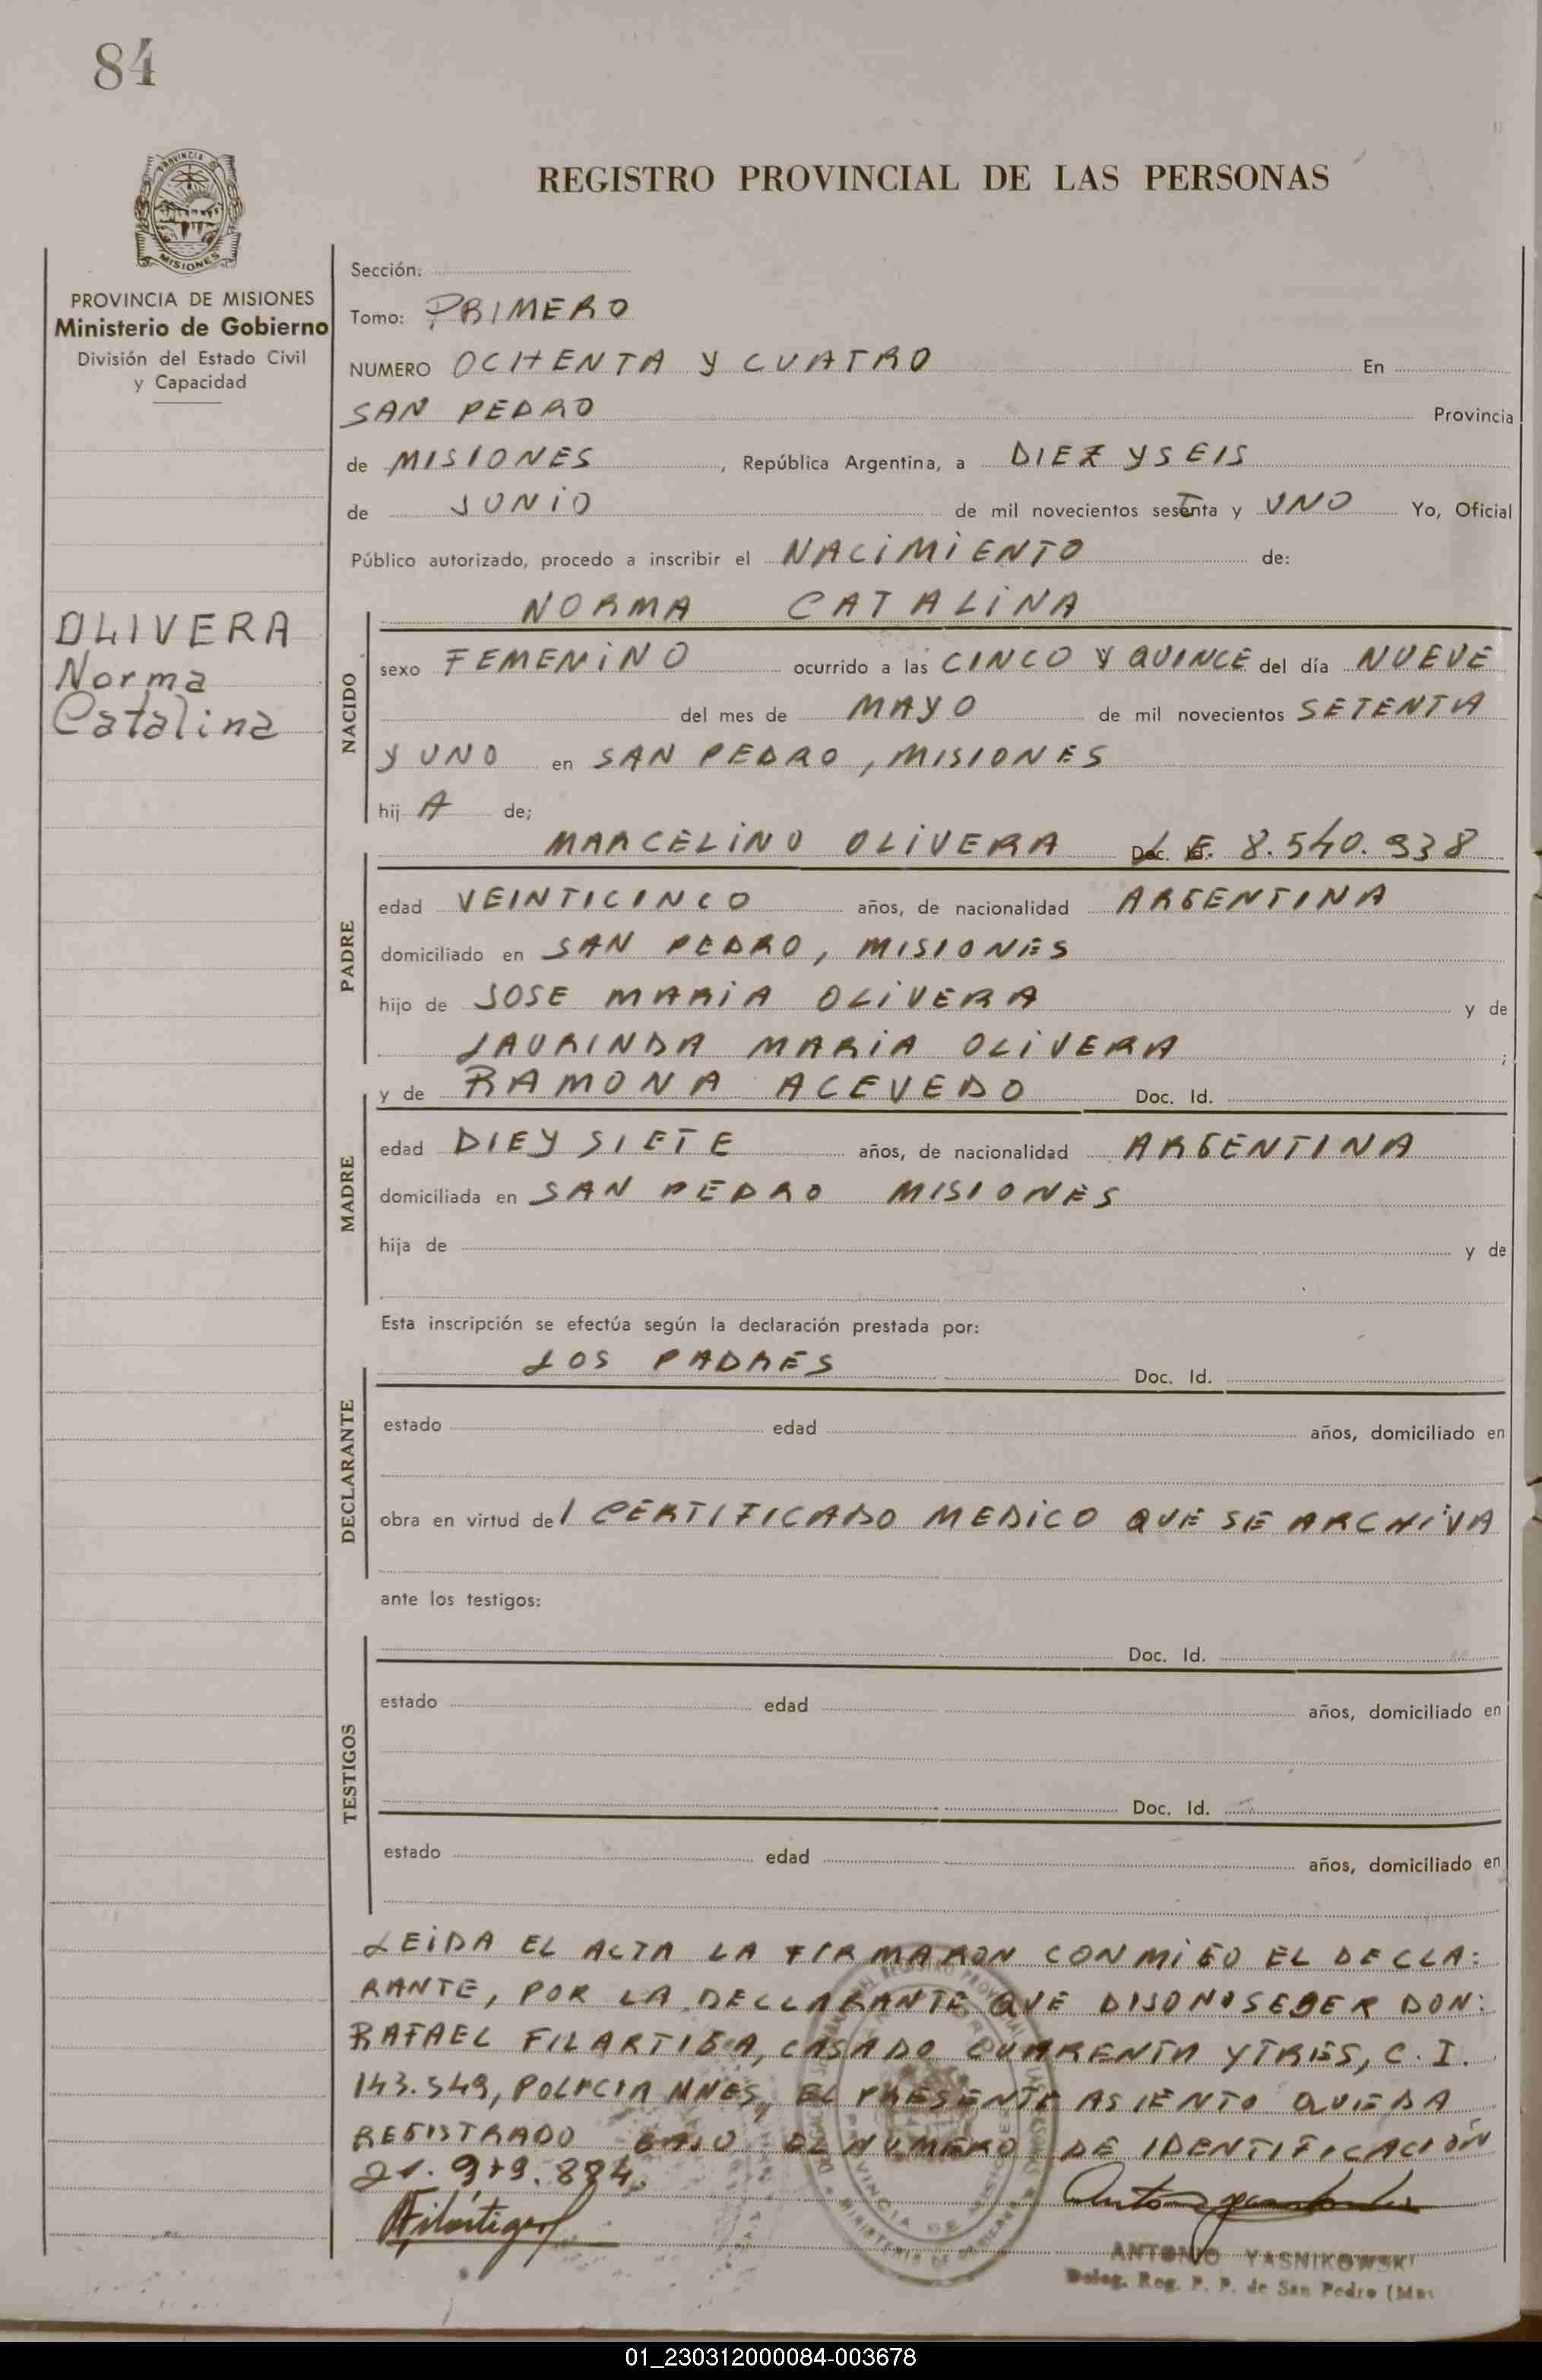 84
REGISTRO PROVINCIAL DE LAS PERSONAS
PROVINCIA DE MISIONES
Ministerio de Gobierno
División del Estado Civil
y Capacidad
OLIVERA
Norma
Catalina
Sección:
Tomo: PRIMERO
NUMERO OCHENTA Y CUATRO En
SAN PEDRO Provincia
de MISIONES, República Argentina, a DIEZ Y SEIS
de JUNIO de mil novecientos setenta y UNO Yo, Oficial
Público autorizado, procedo a inscribir el NACIMIENTO de:
NORMA CATALINA
NACIDO
sexo FEMENINO ocurrido a las CINCO Y QUINCE del día NUEVE
del mes de MAYO de mil novecientos SETENTA
Y UNO en SAN PEDRO, MISIONES
hij A de;
MARCELINO OLIVERA L.E. 8.540.938
PADRE
edad VEINTICINCO años, de nacionalidad ARGENTINA
domiciliado en SAN PEDRO, MISIONES
hijo de JOSE MARIA OLIVERA y de
LAURINDA MARIA OLIVERA ;
y de RAMONA ACEVEDO Doc. Id.
MADRE
edad DIEY SIETE años, de nacionalidad ARGENTINA
domiciliada en SAN PEDRO MISIONES
hija de y de
Esta inscripción se efectúa según la declaración prestada por:
LOS PADRES Doc. Id.
DECLARANTE
estado edad años, domiciliado en
obra en virtud del CERTIFICADO MEDICO QUE SE ARCHIVA
ante los testigos:
Doc. Id.
TESTIGOS
estado edad años, domiciliado en
Doc. Id.
estado edad años, domiciliado en
LEIDA EL ACTA LA FIRMARON CONMIGO EL DECLA:
RANTE, POR LA DECLARANTE QUE DIJO NO SEBER DON:
RAFAEL FILARTIGA, CASADO CUARENTA Y TRES, C.I.
143.549, POLICIA MNES, EL PRESENTE ASIENTO QUEDA
REGISTRADO BAJO EL NUMERO DE IDENTIFICACIÓN
21.979.884.
RFilártiga
ANTONIO YASNIKOWSKI
Deleg. Reg. P. P. de San Pedro (Mns
01_230312000084-003678